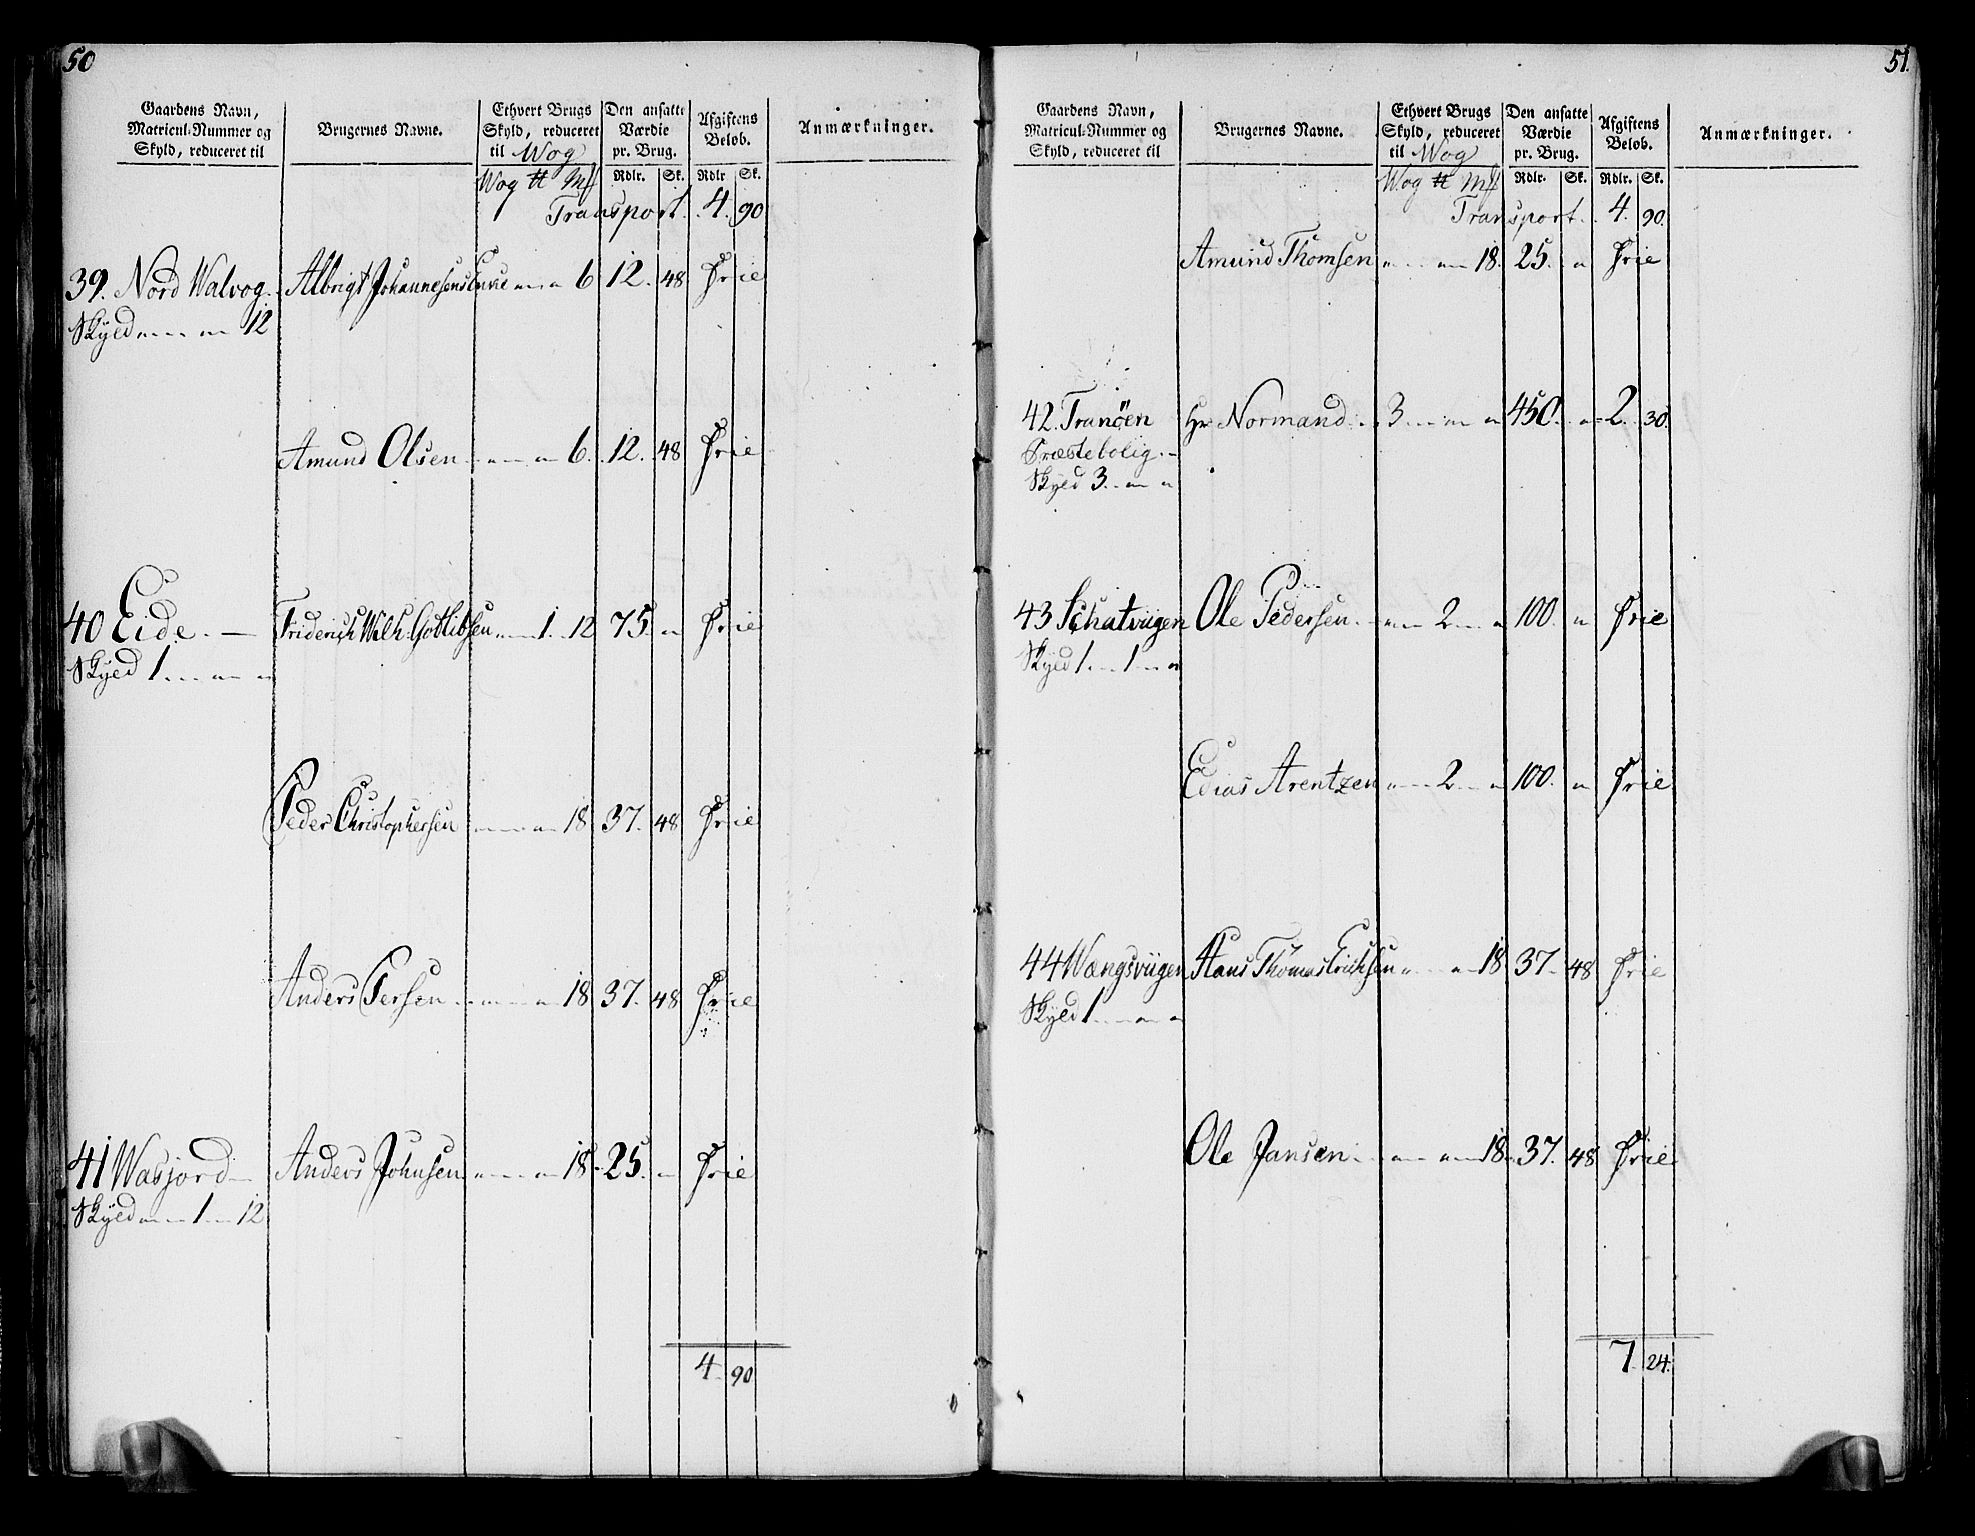 50
Gaardens Navn, Matricul-Nummer og Skyld, reduceret til
Brugernes Navne.
Ethvert Brugs Skyld, reduceret til Wog
Den ansatte Værdie pr. Brug.
Afgiftens Beløb.
Anmærkninger.
Wog ℔ Mk Rdlr. Sk. Rdlr Sk.
Transport. 4. 90
39. Nord Walvog. Albrigt Johannesens Enke " " 6 12. 48 Frie
Skyld " " 12
Amund Olsen " " 6. 12. 48 Frie
40 Eide. — Friderich Wilh: Gotlibsen " 1. 12 75. " Frie
Skyld 1 " "
Peder Christophersen " " 18 37. 48 Frie
Anders Persen " " 18 37. 48 Frie
41 Wasjord — Anders Johnsen " " 18 25. " Frie
Skyld " 1 " 12
4 90
51.
Gaardens Navn, Matricul-Nummer og Skyld, reduceret til
Brugernes Navne.
Ethvert Brugs Skyld, reduceret til Wog
Den ansatte Værdie pr. Brug.
Afgiftens Beløb.
Anmærkninger.
Wog ℔ Mk Rdlr. Sk. Rdlr. Sk.
Transport. 4. 90.
Amund Thomsen " " 18. 25. " Frie
42. Tranöen Hr Normand 3 " " 450. " 2. 30.
Præstebolig. -
Skyld 3. " "
43 Schatviigen Ole Pedersen " 2 " 100. " Frie
Skyld 1 " 1 "
Edias Arentzen " 2 " 100. " Frie
44 Wængsviigen Hans Thomas Erichsen " " 18 37. 48 Frie
Skyld 1 " "
Ole Jansen " " 18. 37. 48 Frie
7 24.